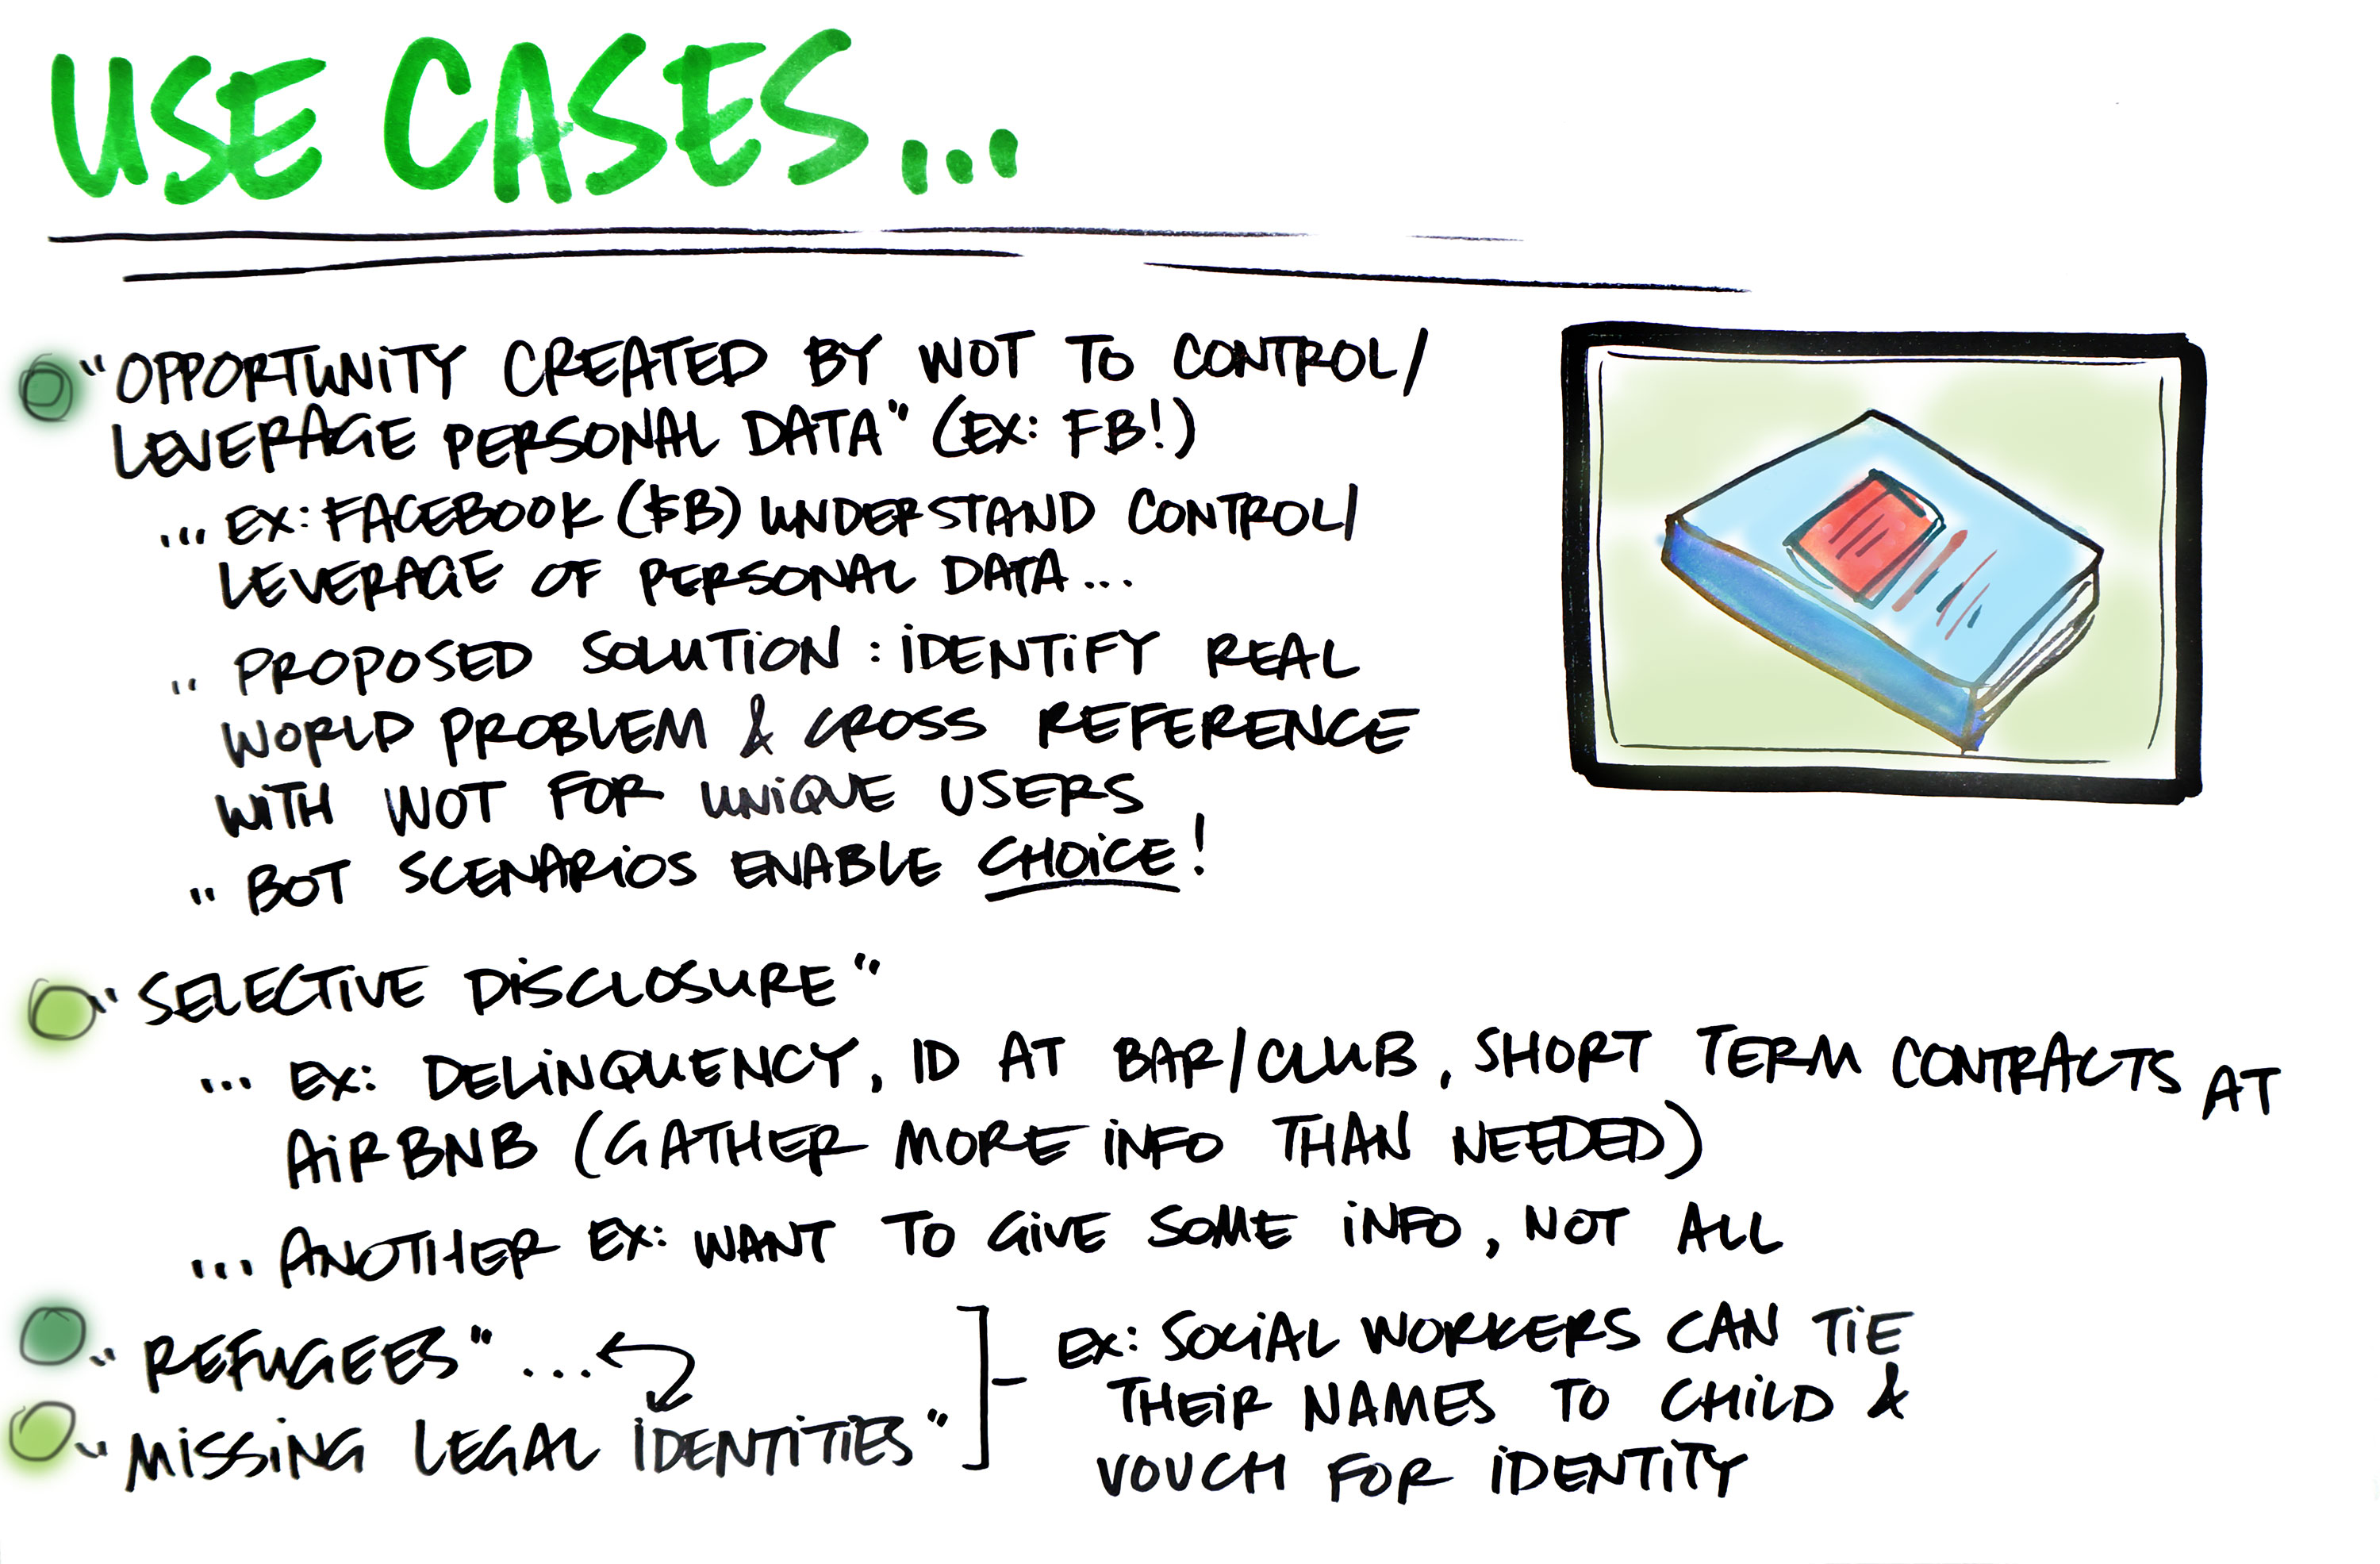 USE CASES...
"OPPORTUNITY CREATED BY WOT TO CONTROL/
LEVERAGE PERSONAL DATA" (EX: FB!)
... EX: FACEBOOK ($B) UNDERSTAND CONTROL/
LEVERAGE OF PERSONAL DATA...
.. PROPOSED SOLUTION: IDENTIFY REAL
WORLD PROBLEM & CROSS REFERENCE
WITH WOT FOR UNIQUE USERS
.. BOT SCENARIOS ENABLE CHOICE!
"SELECTIVE DISCLOSURE"
... EX: DELINQUENCY, ID AT BAR/CLUB, SHORT TERM CONTRACTS AT
AIRBNB (GATHER MORE INFO THAN NEEDED)
... ANOTHER EX: WANT TO GIVE SOME INFO, NOT ALL
"REFUGEES" ...
"MISSING LEGAL IDENTITIES"
EX: SOCIAL WORKERS CAN TIE
THEIR NAMES TO CHILD &
VOUCH FOR IDENTITY